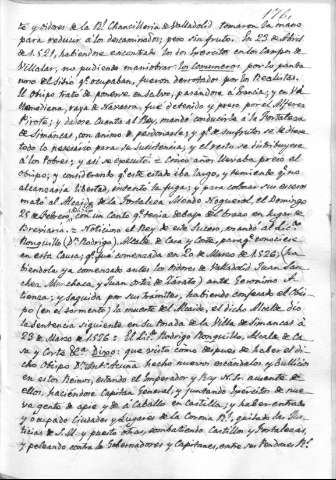 te y oidores de la Rl. Chancilleria de Valladolid tomaron la mano
para reducir á los descaminados; pero sin fruto. En 23 de Abril
de 1521, habiendose encontrado los dos Exercitos en los Campos de
Villalar, no pudiendo maniobrar los comuneros por lo panta-
noso del sitio qe. ocupaban, fueron derrotados por los Realistas.
El obispo trató de ponerse en salvo, pasandose á Francia; y en Vi-
llamediana, raya de Navarra, fue detenido y preso por el Alferez
Perote; y dése Cuenta al Rey, mandó conducirle á la Fortaleza
de Simáncas, con animo de perdonarle; y qe. de sus frutos se le diese
todo lo necesario para su Subsistencia; y el resto se distribuyese
á los Pobres; y asi se executó. = Cinco años llevaba preso el
obispo; y considerando qe. este estado iba largo, y temiendo qe. no
alcanzaria libertad, intentó la fuga; y para colorar sus deseos
mató al Alcaide de la Fortaleza Mendo Nogueról, el Domingo
25 de Febrero, con un Canto qe. tenia debajo del brazo en lugar de
Breviario. = Noticioso el Rey de este Suceso, mandó al Lic.
Ronquillo (Dn. Rodrigo), Alcalde de Casa y Corte, para qe. conociese
en esta Causa, qe. fue comenzada en 20 de Marzo de 1526; (ha-
biendola ya comenzado antes los oidores de Valladolid Juan Sán-
chez Menchaca, y Juan ortiz de Zárate) ante Geronimo A-
tienza; y seguida por sus tramites, habiendo confesado el Obis-
po (en el tormento) la muerte del Alcaide, el dicho Alcalde dio
la Sentencia siguiente en su Posada de la Villa de Simáncas á
23 de Marzo de 1526 = El Lic. Rodrigo Ronquillo, Alcalde de Ca-
sa y Corte &c. Dixo: que visto como despues de haber el di-
cho Obispo Dn. Antº Acuña hecho nuevos escándalos, y Bullicios
en estos Reinos, estando el Emperador y Rey N. S. ausente de
ellos, haciendose Capitan General, y juntando Exercitos de nue-
va gente de apie y de á Caballo en Castilla; y haber entrado
y ocupado Ciudades y Lugares de la Corona Rl., quitado las Jus-
ticias de S. M. y puesto otras, combatiendo Castillos y Fortalezas,
y peleando contra los Gobernadores y Capitanes, entre sus Pendones Rl.